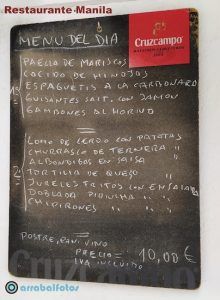 Restaurante Manila
MENU DEL DIA
Cruzcampo
PAELLA DE MARISCOS
COCIDO DE HINOJOS
ESPAGUETIS A LA CARBONARA
GUISANTES SALT. CON JAMON
1º
LOMO DE CERDO CON PATATAS
CHURRASCO DE TERNERA "
ALBONDIGAS EN SALSA "
TORTILLA DE QUESO "
JURELES FRITOS CON ENSALADA
CHIPIRONES " "
2º
POSTRE, PAN, VINO
PRECIO = 10,00 €
IVA INCLUIDO
Cruzcampo
arrabalfotos